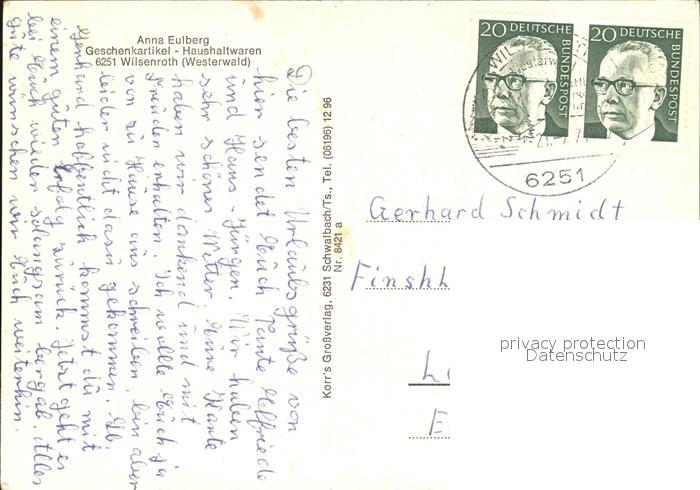 Anna Eulberg
Geschenkartikel - Haushaltwaren
6251 Wilsenroth (Westerwald)
Die besten Urlaubsgrüße von
hier sendet Euch Tante Elfriede
und Hans-Jürgen. Wir haben
sehr schönes Wetter. Eure Karte
haben wir dankend und mit
Freuden erhalten. Ich wollte Euch ja
von zu Hause aus schreiben, bin aber
leider nicht dazu gekommen. Lb.
Gerhard hoffentlich kommst du mit
einem guten Erfolg zurück. Jetzt geht es
bei Euch wieder langsam bergab. Alles
Gute wünschen wir Euch weiterhin.
Korr's Großverlag, 6231 Schwalbach/Ts., Tel. (06196) 12 96
Nr. 8421 a
20 DEUTSCHE BUNDESPOST
20 DEUTSCHE BUNDESPOST
6251
Gerhard Schmidt
Finshh
privacy protection
Datenschutz